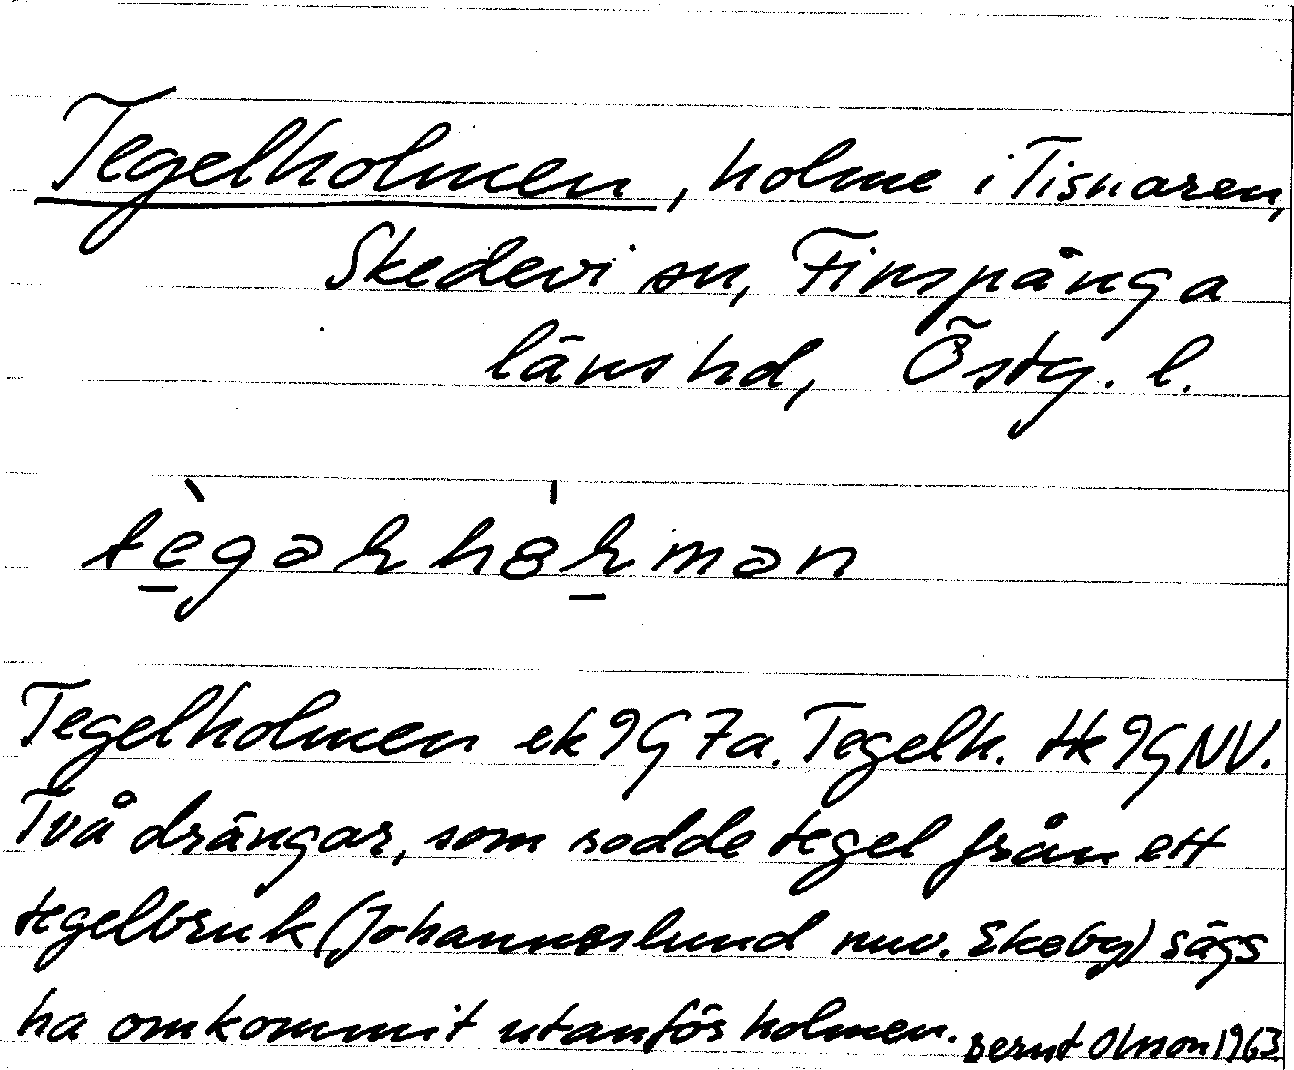 Tegelholmen, holme i Tisnaren,
Skedevi sn, Finspånga
läns hd, Östg. l.
Tegelholmen ek 9G 7a. Tegelh. tk 9G NV.
Två drängar, som rodde tegel från ett
tegelbruk (Johanneslund nuv. Ekeby) sägs
ha omkommit utanför holmen. Bernt Olsson 1963